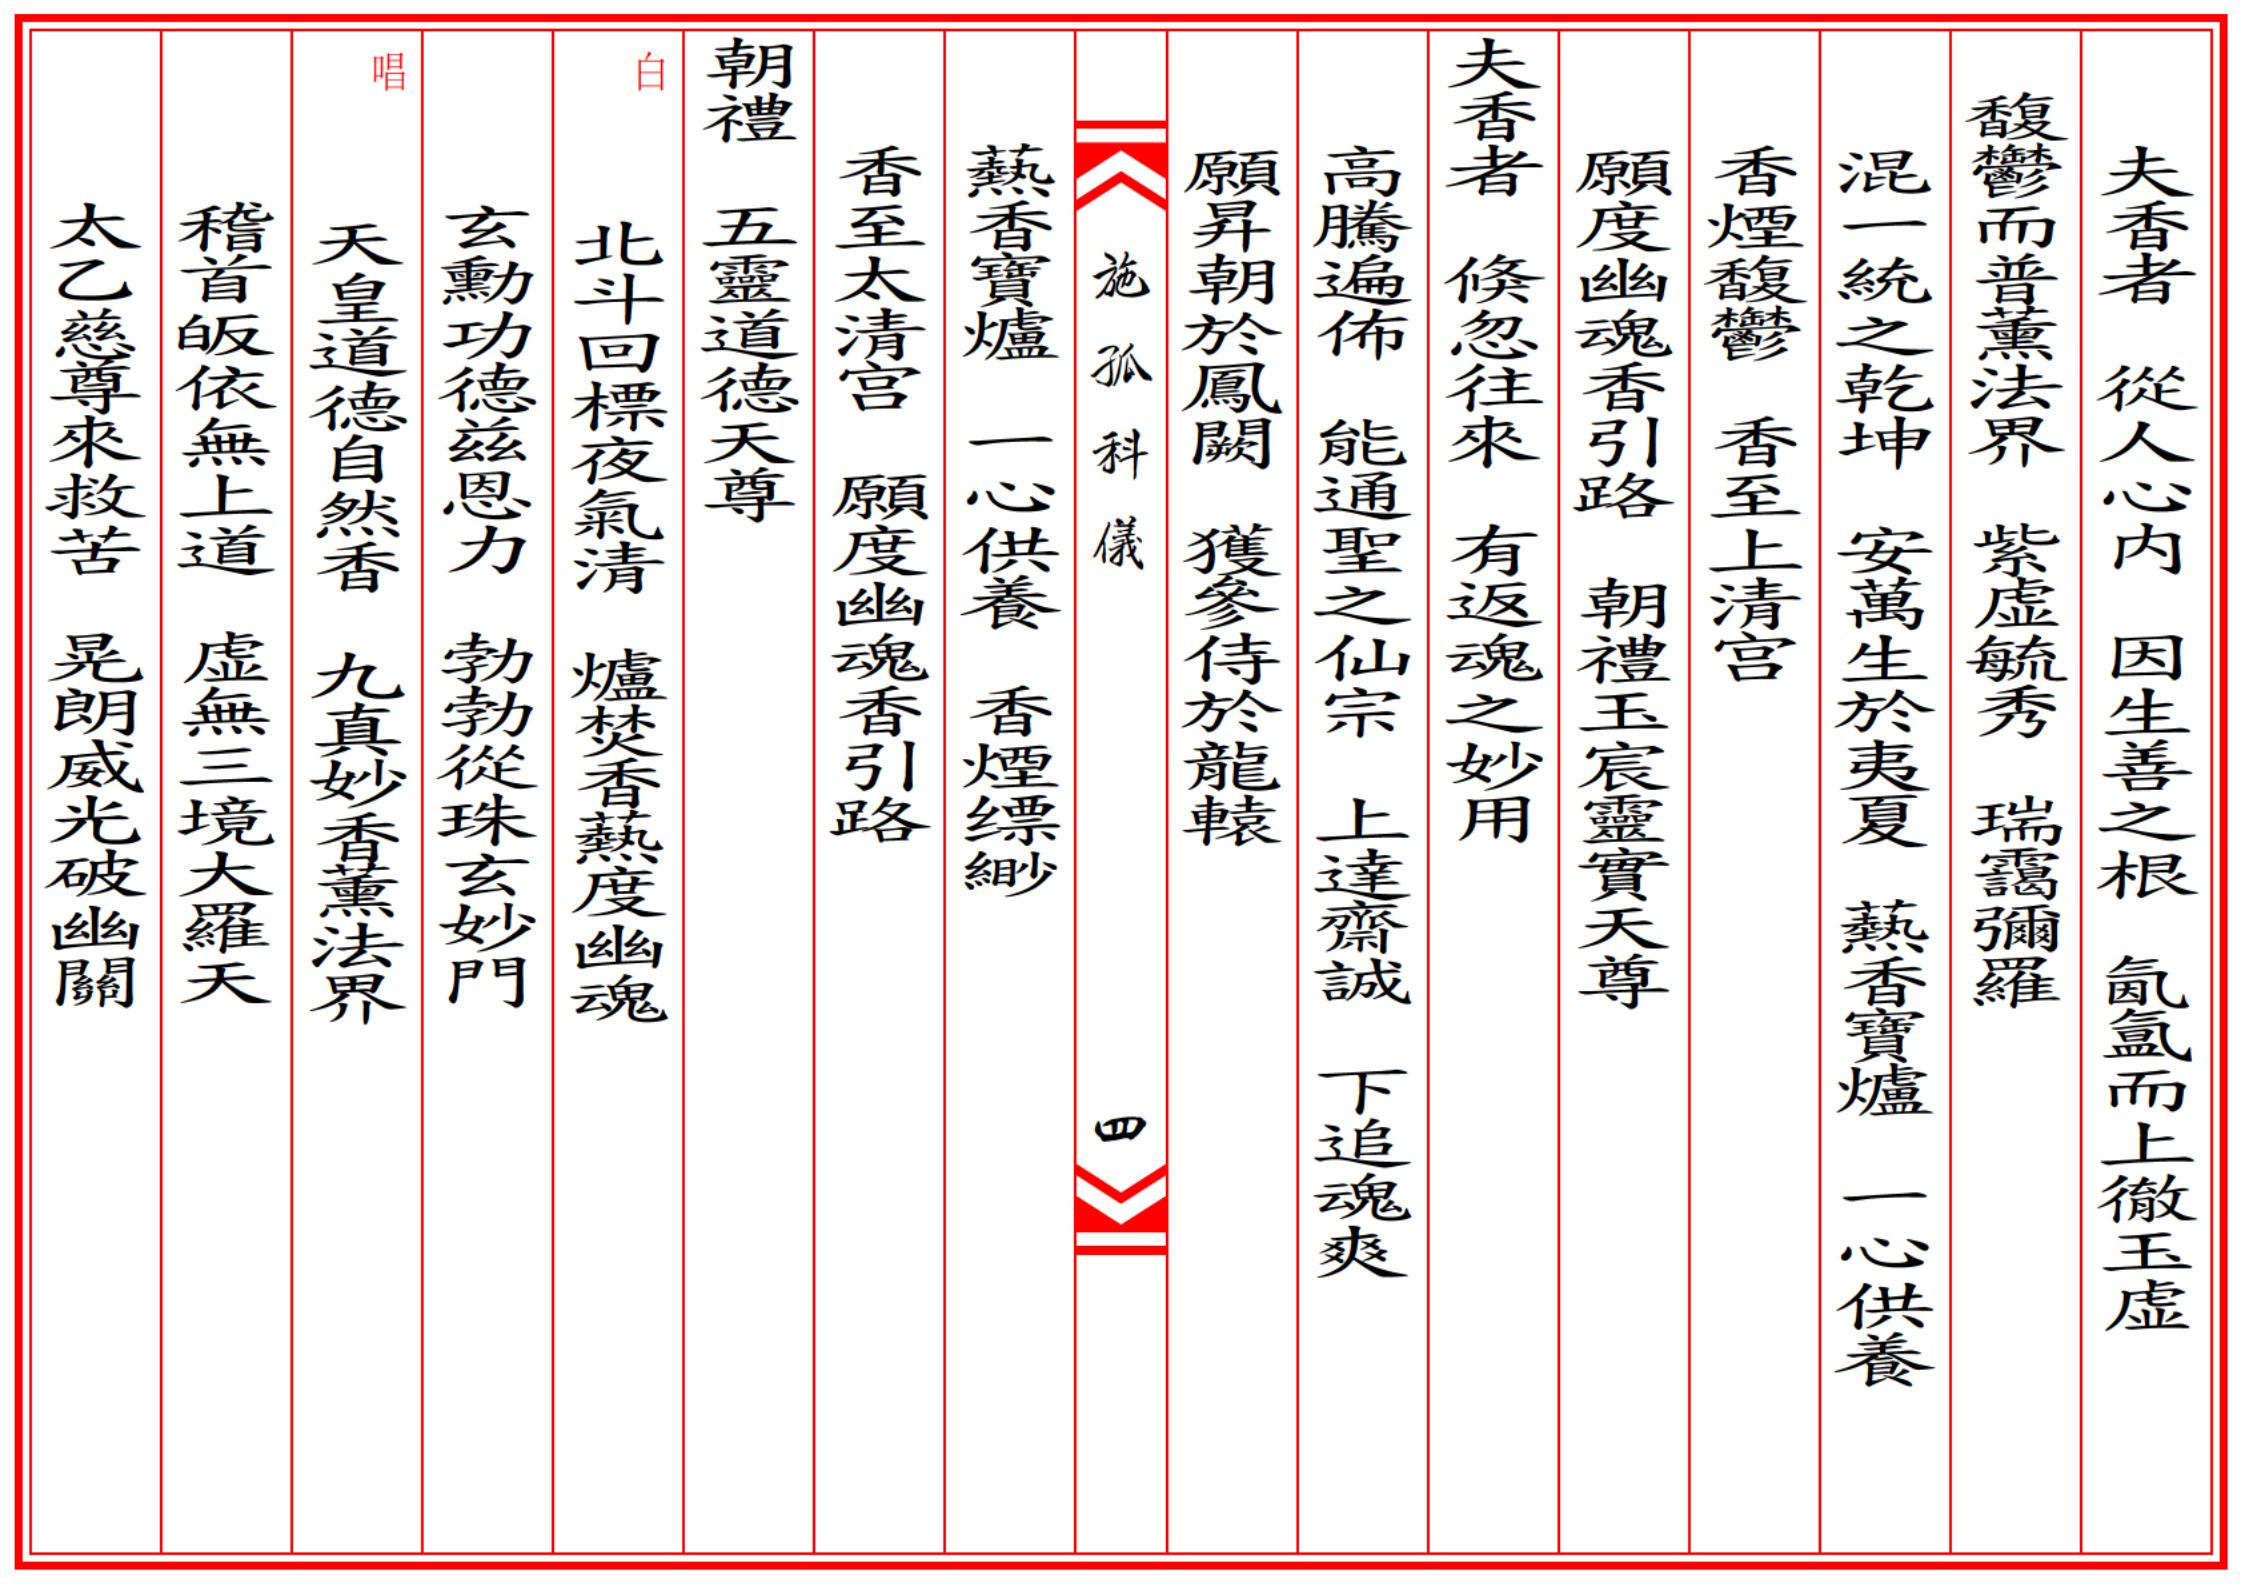 夫香者　從人心内　因生善之根　氤氳而上徹玉虛
馥鬱而普薰法界　紫虛毓秀　瑞靄彌羅
混一統之乾坤　安萬生於夷夏　爇香寶爐　一心供養
香煙馥鬱　香至上清宫
願度幽魂香引路　朝禮玉宸靈實天尊
夫香者　倏忽往來　有返魂之妙用
高騰遍佈　能通聖之仙宗　上達齋誠　下追魂爽
願昇朝於鳳闕　獲參侍於龍轅
施孤科儀　四
爇香寶爐　一心供養　香煙縹緲
香至太清宫　願度幽魂香引路
朝禮　五靈道德天尊
白　北斗回標夜氣清　爐焚香爇度幽魂
玄勳功德兹恩力　勃勃從珠玄妙門
唱　天皇道德自然香　九真妙香薰法界
稽首皈依無上道　虛無三境大羅天
太乙慈尊來救苦　晃朗威光破幽關